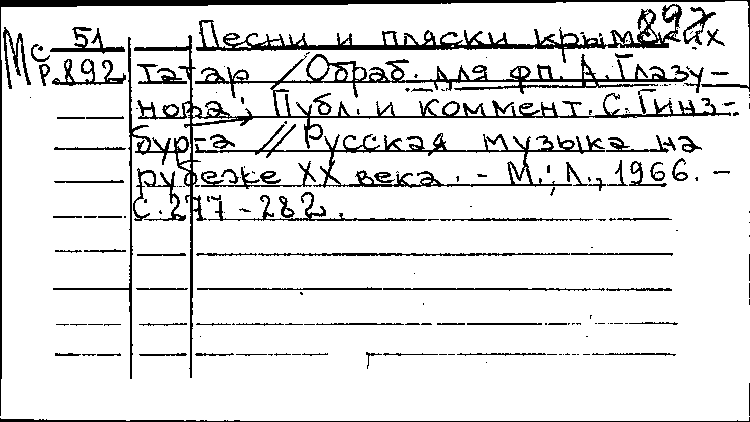 897
Мс 51
Р.892
Песни и пляски крымских
татар / Обраб. для фп. А. Глазу-
нова; Публ. и коммент. С. Гинз-
бурга // Русская музыка на
рубеже XX века. - М.; Л., 1966. -
С. 277-282.